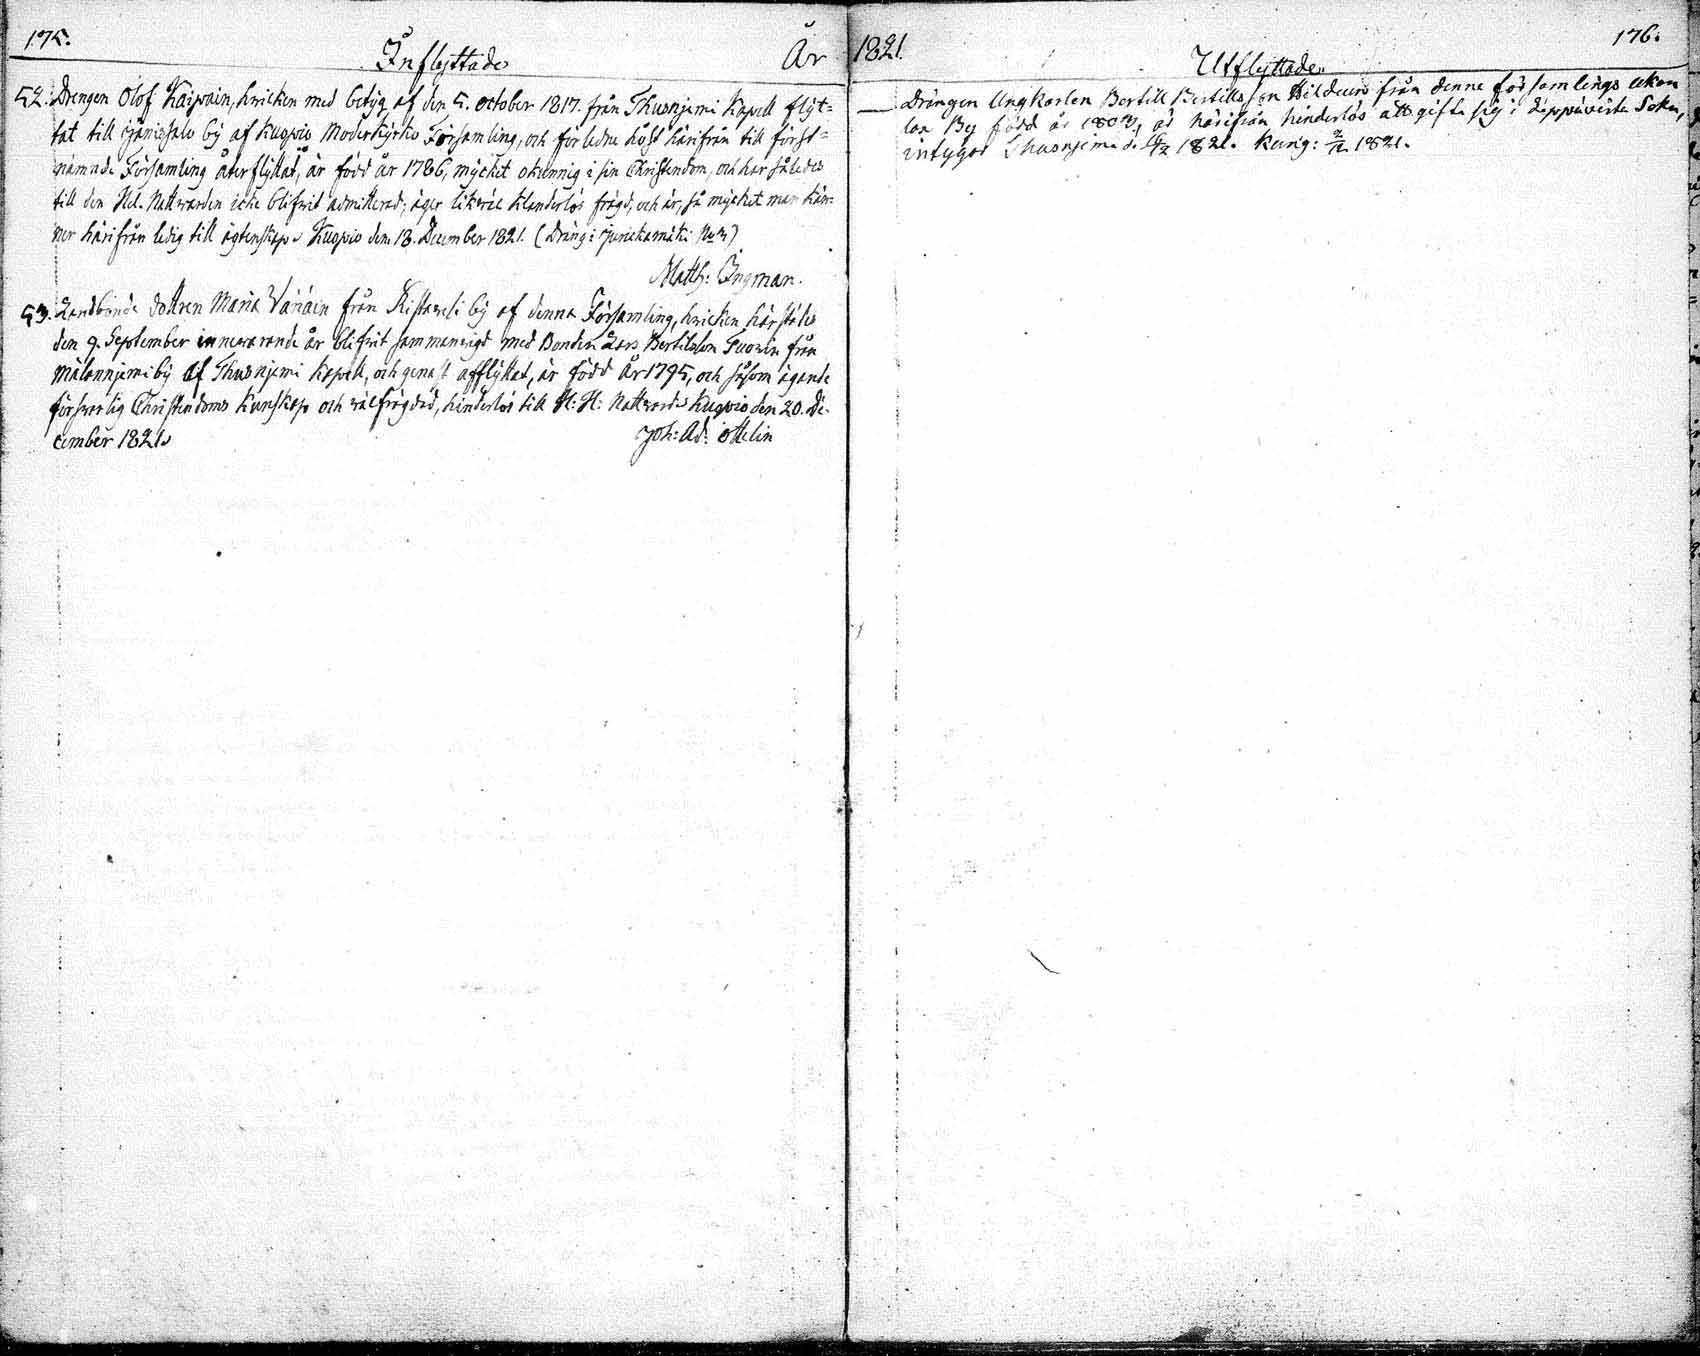 175.
Inflyttade
År
52. Drengen Olof Kaipain, hvicken med betyg af den 5. October 1817. från Thusnjemi Kapell flyt-
tat till by af Kuopio Moderkyrko Församling, och förledne höst härifrån till först-
nämnde Församling återflyttat, är född år 1786, mycket okunnig i sin Christendom, och har således
till den Hel. Nattvarden icke blifvit admitterad; äger likväl klanderlös frägd, och är, så mycket man kän-
ner härifrån ledig till ägtenskap. Kuopio dem 18. December 1821. (Dräng i No 3)
Matth: Ingman.
53. Landbonde dottren Maria Vänäin från Ristaveli by af denna Församling, hvicken härstädes
den 9. September innevarande år blifvit sammanvigd med Bonden Lars Bertilsson Tuovin från
Målannjemi by af Thusnjemi Kapell, och genast afflyttat, är född År 1795, och såsom ägande
försvarlig Christendoms Kunskap och välfrägdad, hinderlös till H: H: Nattvard. Kuopio den 20. De-
cember 1821.
Joh: Ad: Ottelin
1821.
Utflyttade.
176.
Drängen Ungkarlen Bertill Bertills son från denne församlings Akon
lax By född år 1803, är härifrån hinderlös att gifta sig i Säppävirta Sokn,
intygas Thusnjemi d. 1821. Kung: 2/12 1821.